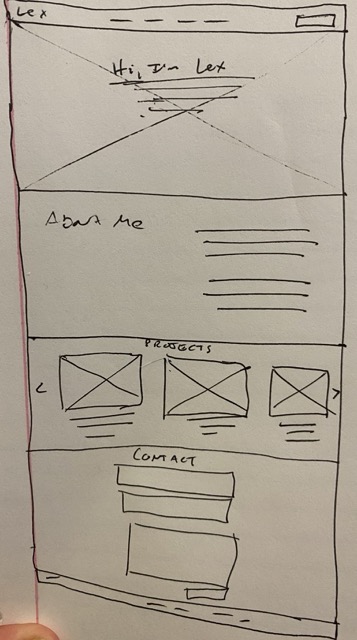 Lex
Hi, I'm Lex
About Me
PROJECTS
CONTACT